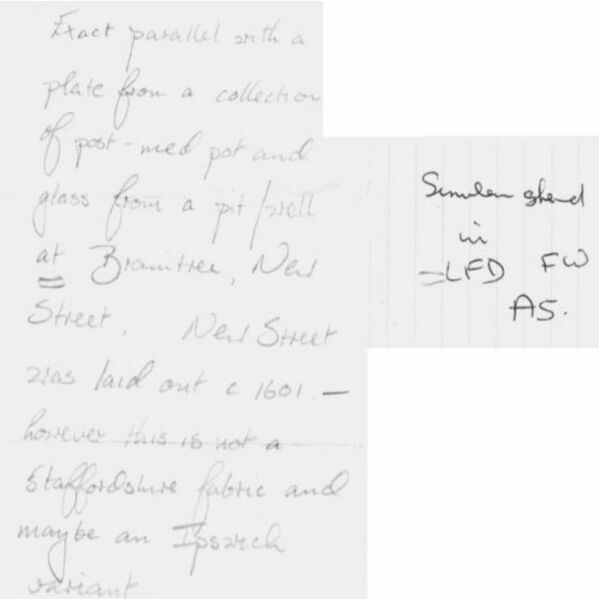 Exact parallel with a
plate from a collection
of post-med pot and
glass from a pit/well
at Braintree, New
Street. New Street
was laid out c 1601 —
however this is not a
Staffordshire fabric and
maybe an Ipswich
variant
Similar sherd
in
=LFD FW
AS.